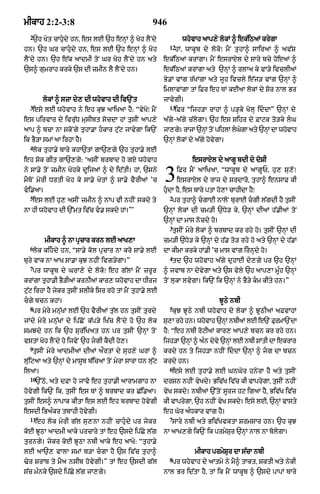 ਮੀਕਾਹ 2:2-3:8
946
²ਉਹ ਖੇਤ ਚਾਹੁੰਦੇ ਹਨ, ਇਸ ਲਈ ਉਹ ਇਨ੍ਹਾਂ ਨੂੰ ਖੋਹ ਲੈਂਦੇ
ਹਨ। ਉਹ ਘਰ ਚਾਹੁੰਦੇ ਹਨ, ਇਸ ਲਈ ਉਹ ਇਨ੍ਹਾਂ ਨੂੰ ਖੋਹ
ਲੈਂਦੇ ਹਨ। ਉਹ ਇੱਕ ਆਦਮੀ ਤੋਂ ਘਰ ਖੋਹ ਲੈਂਦੇ ਹਨ ਅਤੇ
ਉਸਨੂੰ ਗੁਮਰਾਹ ਕਰਕੇ ਉਸ ਦੀ ਜਮੀਨ ਲੈ ਲੈਂਦੇ ਹਨ।
ਲੋਕਾਂ ਨੂੰ ਸਜ਼ਾ ਦੇਣ ਦੀ ਯਹੋਵਾਹ ਦੀ ਵਿਉਂਤ
³ਇਸੇ ਲਈ ਯਹੋਵਾਹ ਨੇ ਇਹ ਕੁਝ ਆਖਿਆ ਹੈ: "ਵੇਖੋ! ਮੈਂ
ਇਸ ਪਰਿਵਾਰ ਦੇ ਵਿਰੁੱਧ ਮੁਸੀਬਤ ਸੋਚਦਾ ਹਾਂ ਤੁਸੀਂ ਆਪਣੇ
ਆਪ ਨੂੰ ਬਚਾ ਨਾ ਸਕੋਂਗੇ ਤੁਹਾਡਾ ਹੰਕਾਰ ਟੁੱਟ ਜਾਵੇਗਾ ਕਿਉਂ
ਕਿ ਭੈੜਾ ਸਮਾਂ ਆ ਰਿਹਾ ਹੈ।
⁴ਲੋਕ ਤੁਹਾਡੇ ਬਾਰੇ ਕਹਾਉਤਾਂ ਗਾਉਣਗੇ ਉਹ ਤੁਹਾਡੇ ਲਈ
ਇਹ ਸ਼ੋਕ ਗੀਤ ਗਾਉਣਗੇ: 'ਅਸੀਂ ਬਰਬਾਦ ਹੋ ਗਏ ਯਹੋਵਾਹ
ਨੇ ਸਾਡੇ ਤੋਂ ਜਮੀਨ ਖੋਹਕੇ ਦੂਜਿਆਂ ਨੂੰ ਦੇ ਦਿੱਤੀ। ਹਾਂ, ਉਸਨੇ
ਮੈਥੋਂ ਮੇਰੀ ਧਰਤੀ ਖੋਹ ਕੇ ਸਾਡੇ ਖੇਤਾਂ ਨੂੰ ਸਾਡੇ ਵੈਰੀਆਂ 'ਚ
ਵੰਡਿਆ।
⁵ਇਸ ਲਈ ਹੁਣ ਅਸੀਂ ਜਮੀਨ ਨੂੰ ਨਾਪ ਵੀ ਨਹੀਂ ਸਕਦੇ ਤੇ
ਨਾ ਹੀ ਯਹੋਵਾਹ ਦੀ ਉੱਮਤ ਵਿੱਚ ਵੰਡ ਸਕਦੇ ਹਾਂ।'"
ਮੀਕਾਹ ਨੂੰ ਨਾ ਪ੍ਰਚਾਰ ਕਰਨ ਲਈ ਆਖਣਾ
⁶ਲੋਕ ਕਹਿੰਦੇ ਹਨ, "ਸਾਡੇ ਕੋਲ ਪ੍ਰਚਾਰ ਨਾ ਕਰੋ ਸਾਡੇ ਲਈ
ਬੁਰੇ ਵਾਕ ਨਾ ਆਖ ਸਾਡਾ ਕੁਝ ਨਹੀਂ ਵਿਗੜੇਗਾ।"
⁷ਪਰ ਯਾਕੂਬ ਦੇ ਘਰਾਣੇ ਦੇ ਲੋਕੋ: ਇਹ ਗੱਲਾਂ ਮੈਂ ਜ਼ਰੂਰ
ਕਰਾਂਗਾ ਤੁਹਾਡੀ ਭੈੜੀਆਂ ਕਰਨੀਆਂ ਕਾਰਣ ਯਹੋਵਾਹ ਦਾ ਧੀਰਜ
ਟੁੱਟ ਰਿਹਾ ਹੈ ਜੇਕਰ ਤੁਸੀਂ ਸਲੀਕੇ ਸਿਰ ਰਹੋ ਤਾਂ ਮੈਂ ਤੁਹਾਡੇ ਲਈ
ਚੰਗੇ ਬਚਨ ਕਹਾਂ।
⁸ਪਰ ਮੇਰੇ ਮਨੁੱਖਾਂ ਲਈ ਉਹ ਵੈਰੀਆਂ ਤੁੱਲ ਹਨ ਤੁਸੀਂ ਤੁਰਦੇ
ਜਾਂਦੇ ਮੇਰੇ ਮਨੁੱਖਾਂ ਦੇ ਪਿੱਛੋਂ ਕੱਪੜੇ ਖਿੱਚ ਲੈਂਦੇ ਹੋ ਉਹ ਲੋਕ
ਸਮਝਦੇ ਹਨ ਕਿ ਉਹ ਸੁਰੱਖਿਅਤ ਹਨ ਪਰ ਤੁਸੀਂ ਉਨ੍ਹਾਂ ਤੋਂ
ਵਸਤਾਂ ਖੋਹ ਲੈਂਦੇ ਹੋ ਜਿਵੇਂ ਉਹ ਜੰਗੀ ਕੈਦੀ ਹੋਣ।
⁹ਤੁਸੀਂ ਮੇਰੇ ਆਦਮੀਆਂ ਦੀਆਂ ਔਰਤਾਂ ਦੇ ਸੁਹਣੇ ਘਰਾਂ ਨੂੰ
ਲੁੱਟਿਆ ਅਤੇ ਉਨਾਂ ਦੇ ਮਾਸੂਮ ਬੱਚਿਆਂ ਤੋਂ ਮੇਰਾ ਸਾਰਾ ਧਨ ਲੁੱਟ
ਲਿਆ।
¹⁰ਉੱਠੋ, ਅਤੇ ਦਫ਼ਾ ਹੋ ਜਾਵੋ ਇਹ ਤੁਹਾਡੀ ਆਰਾਮਗਾਹ ਨਾ
ਹੋਵੇਗੀ ਕਿਉਂ ਕਿ, ਤੁਸੀਂ ਇਸ ਥਾਂ ਨੂੰ ਬਰਬਾਦ ਕਰ ਛੱਡਿਆ।
ਤੁਸੀਂ ਇਸਨੂੰ ਨਾਪਾਕ ਕੀਤਾ ਇਸ ਲਈ ਇਹ ਬਰਬਾਦ ਹੋਵੇਗੀ
ਇਸਦੀ ਭਿਅੰਕਰ ਤਬਾਹੀ ਹੋਵੇਗੀ।
¹¹ਇਹ ਲੋਕ ਮੇਰੀ ਗੱਲ ਸੁਣਨਾ ਨਹੀਂ ਚਾਹੁੰਦੇ ਪਰ ਜੇਕਰ
ਕੋਈ ਝੂਠਾ ਆਦਮੀ ਆਕੇ ਪਰਚਾਰੇ ਤਾਂ ਇਹ ਉਸਦੇ ਪਿੱਛੇ ਲੱਗ
ਤੁਰਨਗੇ। ਜੇਕਰ ਕੋਈ ਝੂਠਾ ਨਬੀ ਆਕੇ ਇਹ ਆਖੇ: "ਤੁਹਾਡੇ
ਲਈ ਆਉਣ ਵਾਲਾ ਸਮਾਂ ਬੜਾ ਚੰਗਾ ਹੈ ਉਸ ਵਿੱਚ ਤੁਹਾਨੂੰ
ਢੇਰ ਸ਼ਰਾਬ ਤੇ ਮੈਅ ਨਸੀਬ ਹੋਵੇਗੀ।" ਤਾਂ ਇਹ ਉਸਦੀ ਗੱਲ
ਸੱਚ ਮੰਨਕੇ ਉਸਦੇ ਪਿੱਛੇ ਲੱਗ ਜਾਣਗੇ।
ਯਹੋਵਾਹ ਆਪਣੇ ਲੋਕਾਂ ਨੂੰ ਇਕੱਠਿਆਂ ਕਰੇਗਾ
¹²ਹਾਂ, ਯਾਕੂਬ ਦੇ ਲੋਕੋ: ਮੈਂ ਤੁਹਾਨੂੰ ਸਾਰਿਆਂ ਨੂੰ ਅਵੱਸ਼
ਇਕੱਠਿਆਂ ਕਰਾਂਗਾ। ਮੈਂ ਇਸਰਾਏਲ ਦੇ ਸਾਰੇ ਬਚੇ ਹੋਇਆਂ ਨੂੰ
ਇਕੱਠਿਆਂ ਕਰਾਂਗਾ ਅਤੇ ਉਨ੍ਹਾਂ ਨੂੰ ਰਲਾਅ ਕੇ ਵਾੜੇ ਵਿਚਲੀਆਂ
ਭੇਡਾਂ ਵਾਂਗ ਰੱਖਾਂਗਾ ਅਤੇ ਜੂਹ ਵਿਚਲੇ ਇੱਜੜ ਵਾਂਗ ਉਨ੍ਹਾਂ ਨੂੰ
ਮਿਲਾਵਾਂਗਾ ਤਾਂ ਫ਼ਿਰ ਇਹ ਥਾਂ ਕਈਆਂ ਲੋਕਾਂ ਦੇ ਸ਼ੋਰ ਨਾਲ ਭਰ
ਜਾਵੇਗੀ।
¹³ਫ਼ਿਰ "ਜਿਹੜਾ ਰਾਹਾਂ ਨੂੰ ਪੜ੍ਹਕੇ ਖੋਲ੍ਹ ਦਿੰਦਾ" ਉਨ੍ਹਾਂ ਦੇ
ਅੱਗੇ-ਅੱਗੇ ਚੱਲੇਗਾ। ਉਹ ਇਸ ਸ਼ਹਿਰ ਦੇ ਫ਼ਾਟਕ ਤੋੜਕੇ ਲੰਘ
ਜਾਣਗੇ। ਰਾਜਾ ਉਨ੍ਹਾਂ ਤੋਂ ਪਹਿਲਾਂ ਲੰਘੇਗਾ ਅਤੇ ਉਨ੍ਹਾਂ ਦਾ ਯਹੋਵਾਹ
ਉਨ੍ਹਾਂ ਲੋਕਾਂ ਦੇ ਅੱਗੇ ਹੋਵੇਗਾ।
ਇਸਰਾਏਲ ਦੇ ਆਗੂ ਬਦੀ ਦੇ ਦੋਸ਼ੀ
3 ਫ਼ਿਰ ਮੈਂ ਆਖਿਆ, "ਯਾਕੂਬ ਦੇ ਆਗੂਓ, ਹੁਣ ਸੁਣੋ!
ਇਸਰਾਏਲ ਦੇ ਰਾਜ ਦੇ ਸਰਦਾਰੋ, ਤੁਹਾਨੂੰ ਇਨਸਾਫ਼ ਕੀ
ਹੁੰਦਾ ਹੈ, ਇਸ ਬਾਰੇ ਪਤਾ ਹੋਣਾ ਚਾਹੀਦਾ ਹੈ!
²ਪਰ ਤੁਹਾਨੂੰ ਚੰਗਾਈ ਨਾਲੋਂ ਬੁਰਾਈ ਚੰਗੀ ਲੱਗਦੀ ਹੈ ਤੁਸੀਂ
ਉਨ੍ਹਾਂ ਲੋਕਾਂ ਦੀ ਚਮੜੀ ਉਧੇੜ ਕੇ, ਉਨ੍ਹਾਂ ਦੀਆਂ ਹੱਡੀਆਂ ਤੋਂ
ਉਨ੍ਹਾਂ ਦਾ ਮਾਸ ਨੋਚਦੇ ਹੋ।
³ਤੁਸੀਂ ਮੇਰੇ ਲੋਕਾਂ ਨੂੰ ਬਰਬਾਦ ਕਰ ਰਹੇ ਹੋ। ਤੁਸੀਂ ਉਨ੍ਹਾਂ ਦੀ
ਚਮੜੀ ਉਧੇੜ ਕੇ ਉਨ੍ਹਾਂ ਦੇ ਹੱਡ ਤੋੜ ਰਹੇ ਹੋ ਅਤੇ ਉਨ੍ਹਾਂ ਦੇ ਹੱਡਾਂ
ਦਾ ਕੀਮਾ ਕਰਕੇ ਹਾਂਡੀ 'ਚ ਮਾਸ ਵਾਂਗ ਰਿਨ੍ਹਦੇ ਹੋ।
⁴ਤਦ ਉਹ ਯਹੋਵਾਹ ਅੱਗੇ ਦੁਹਾਈ ਦੇਣਗੇ ਪਰ ਉਹ ਉਨ੍ਹਾਂ
ਨੂੰ ਜਵਾਬ ਨਾ ਦੇਵੇਗਾ ਅਤੇ ਉਸ ਵੇਲੇ ਉਹ ਆਪਣਾ ਮੂੰਹ ਉਨ੍ਹਾਂ
ਤੋਂ ਲੁਕਾ ਲਵੇਗਾ। ਕਿਉਂ ਕਿ ਉਨ੍ਹਾਂ ਨੇ ਭੈੜੇ ਕੰਮ ਕੀਤੇ ਹਨ।"
ਝੂਠੇ ਨਬੀ
⁵ਕੁਝ ਝੂਠੇ ਨਬੀ ਯਹੋਵਾਹ ਦੇ ਲੋਕਾਂ ਨੂੰ ਝੂਠੀਆਂ ਅਫਵਾਹਾਂ
ਸੁਣਾ ਰਹੇ ਹਨ। ਯਹੋਵਾਹ ਉਨ੍ਹਾਂ ਨਬੀਆਂ ਲਈ ਇੰਉ ਫੁਰਮਾਉਂਦਾ
ਹੈ: "ਇਹ ਨਬੀ ਰੋਟੀਆਂ ਕਾਰਣ ਆਪਣੇ ਬਚਨ ਕਰ ਰਹੇ ਹਨ।
ਜਿਹੜਾ ਉਨ੍ਹਾਂ ਨੂੰ ਅੰਨ ਦੇਵੇ ਉਨ੍ਹਾਂ ਲਈ ਨਬੀ ਸ਼ਾਂਤੀ ਦਾ ਇਕਰਾਰ
ਕਰਦੇ ਹਨ ਤੇ ਜਿਹੜਾ ਨਹੀਂ ਦਿੰਦਾ ਉਨ੍ਹਾਂ ਨੂੰ ਜੰਗ ਦਾ ਬਚਨ
ਕਰਦੇ ਹਨ।
⁶ਇਸੇ ਲਈ ਤੁਹਾਡੇ ਲਈ ਘਨਘੋਰ ਹਨੇਰਾ ਹੈ ਅਤੇ ਤੁਸੀਂ
ਦਰਸ਼ਨ ਨਹੀਂ ਵੇਖਦੇ। ਭਵਿੱਖ ਵਿੱਚ ਕੀ ਵਾਪਰੇਗਾ, ਤੁਸੀਂ ਨਹੀਂ
ਵੇਖ ਸਕਦੇ। ਨਬੀਆਂ ਉੱਤੋਂ ਸੂਰਜ ਹਟ ਗਿਆ ਹੈ, ਭਵਿੱਖ ਵਿੱਚ
ਕੀ ਵਾਪਰੇਗਾ, ਉਹ ਨਹੀਂ ਵੇਖ ਸਕਦੇ। ਇਸੇ ਲਈ, ਉਨ੍ਹਾਂ ਵਾਸਤੇ
ਇਹ ਘੋਰ ਅੰਧਕਾਰ ਵਾਂਗ ਹੈ।
⁷ਸਾਰੇ ਨਬੀ ਅਤੇ ਭਵਿੱਖਵਕਤਾ ਸ਼ਰਮਸਾਰ ਹਨ। ਉਹ ਕੁਝ
ਨਾ ਆਖਣਗੇ ਕਿਉਂ ਕਿ ਪਰਮੇਸ਼ੁਰ ਉਨ੍ਹਾਂ ਨਾਲ ਨਾ ਬੋਲੇਗਾ।
ਮੀਕਾਹ ਪਰਮੇਸ਼ੁਰ ਦਾ ਸੱਚਾ ਨਬੀ
⁸ਪਰ ਯਹੋਵਾਹ ਦੇ ਆਤਮੇ ਨੇ ਮੈਨੂੰ ਤਾਕਤ, ਸ਼ਕਤੀ ਅਤੇ ਨੇਕੀ
ਨਾਲ ਭਰ ਦਿੱਤਾ ਹੈ, ਤਾਂ ਕਿ ਮੈਂ ਯਾਕੂਬ ਨੂੰ ਉਸਦੇ ਪਾਪਾਂ ਬਾਰੇ